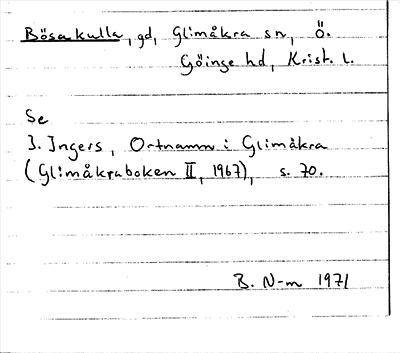 Bösakulla, gd, Glimåkra sn, Ö.
Göinge hd, Krist. l.
Se
I. Ingers, Ortnamn i Glimåkra
(Glimåkraboken II, 1967), s. 70.
B. N-m 1971